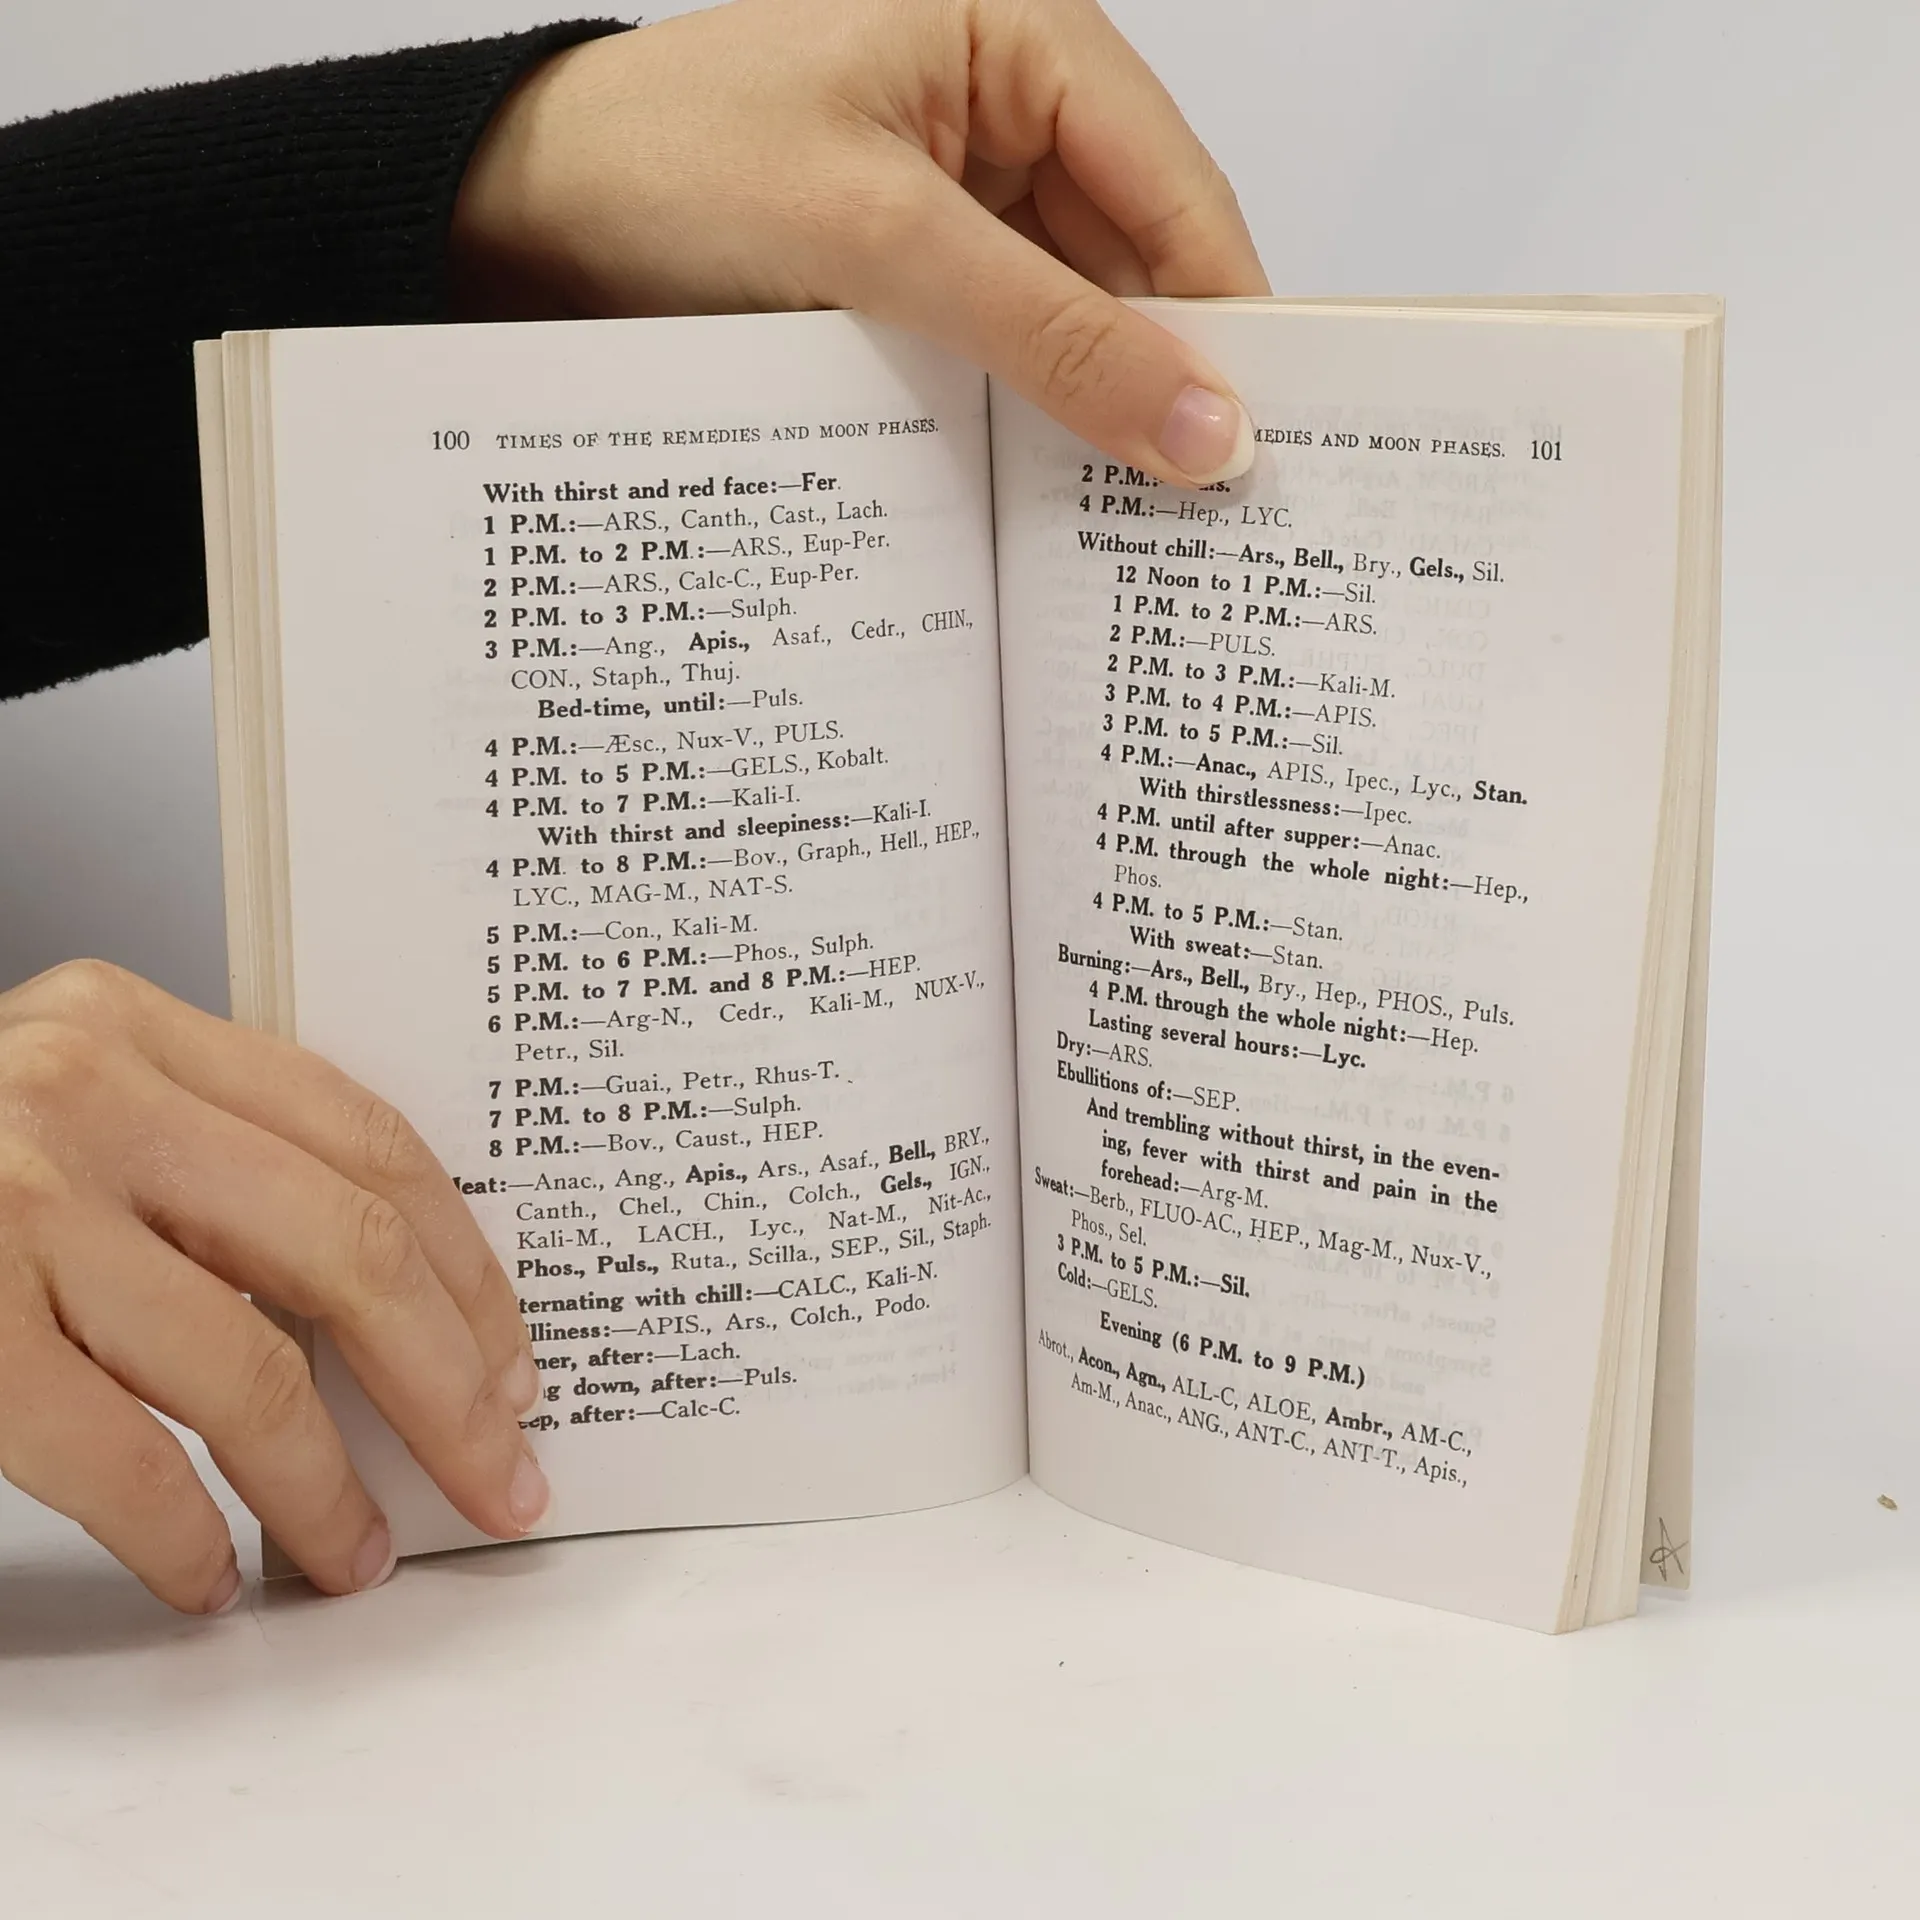 100 TIMES OF THE REMEDIES AND MOON PHASES.
With thirst and red face:—Fer.
1 P.M.:—ARS., Canth., Cast., Lach.
1 P.M. to 2 P.M.:—ARS., Eup-Per.
2 P.M.:—ARS., Calc-C., Eup-Per.
2 P.M. to 3 P.M.:—Sulph.
3 P.M.:—Ang., Apis., Asaf., Cedr., CHIN.,
CON., Staph., Thuj.
Bed-time, until:—Puls.
4 P.M.:—Æsc., Nux-V., PULS.
4 P.M. to 5 P.M.:—GELS., Kobalt.
4 P.M. to 7 P.M.:—Kali-I.
With thirst and sleepiness:—Kali-I.
4 P.M. to 8 P.M.:—Bov., Graph., Hell., HEP.,
LYC., MAG-M., NAT-S.
5 P.M.:—Con., Kali-M.
5 P.M. to 6 P.M.:—Phos., Sulph.
5 P.M. to 7 P.M. and 8 P.M.:—HEP.
6 P.M.:—Arg-N., Cedr., Kali-M., NUX-V.,
Petr., Sil.
7 P.M.:—Guai., Petr., Rhus-T.
7 P.M. to 8 P.M.:—Sulph.
8 P.M.:—Bov., Caust., HEP.
eat:—Anac., Ang., Apis., Ars., Asaf., Bell., BRY.,
Canth., Chel., Chin., Colch., Gels., IGN.,
Kali-M., LACH., Lyc., Nat-M., Nit-Ac.,
Phos., Puls., Ruta., Scilla., SEP., Sil., Staph.
ternating with chill:—CALC., Kali-N.
lliness:—APIS., Ars., Colch., Podo.
ner, after:—Lach.
g down, after:—Puls.
ep, after:—Calc-C.
MEDIES AND MOON PHASES. 101
2 P.M.:
4 P.M.:—Hep., LYC.
Without chill:—Ars., Bell., Bry., Gels., Sil.
12 Noon to 1 P.M.:—Sil.
1 P.M. to 2 P.M.:—ARS.
2 P.M.:—PULS.
2 P.M. to 3 P.M.:—Kali-M.
3 P.M. to 4 P.M.:—APIS.
3 P.M. to 5 P.M.:—Sil.
4 P.M.:—Anac., APIS., Ipec., Lyc., Stan.
With thirstlessness:—Ipec.
4 P.M. until after supper:—Anac.
4 P.M. through the whole night:—Hep.,
Phos.
4 P.M. to 5 P.M.:—Stan.
With sweat:—Stan.
Burning:—Ars., Bell., Bry., Hep., PHOS., Puls.
4 P.M. through the whole night:—Hep.
Lasting several hours:—Lyc.
Dry:—ARS.
Ebullitions of:—SEP.
And trembling without thirst, in the even-
ing, fever with thirst and pain in the
forehead:—Arg-M.
Sweat:—Berb., FLUO-AC., HEP., Mag-M., Nux-V.,
Phos., Sel.
3 P.M. to 5 P.M.:—Sil.
Cold:—GELS.
Evening (6 P.M. to 9 P.M.)
Abrot., Acon., Agn., ALL-C, ALOE, Ambr., AM-C.,
Am-M., Anac., ANG., ANT-C., ANT-T., Apis.,